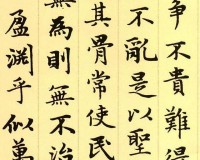 爭不貴難得
不亂是以聖
其骨常使民
無為則無不治
盈淵乎似萬